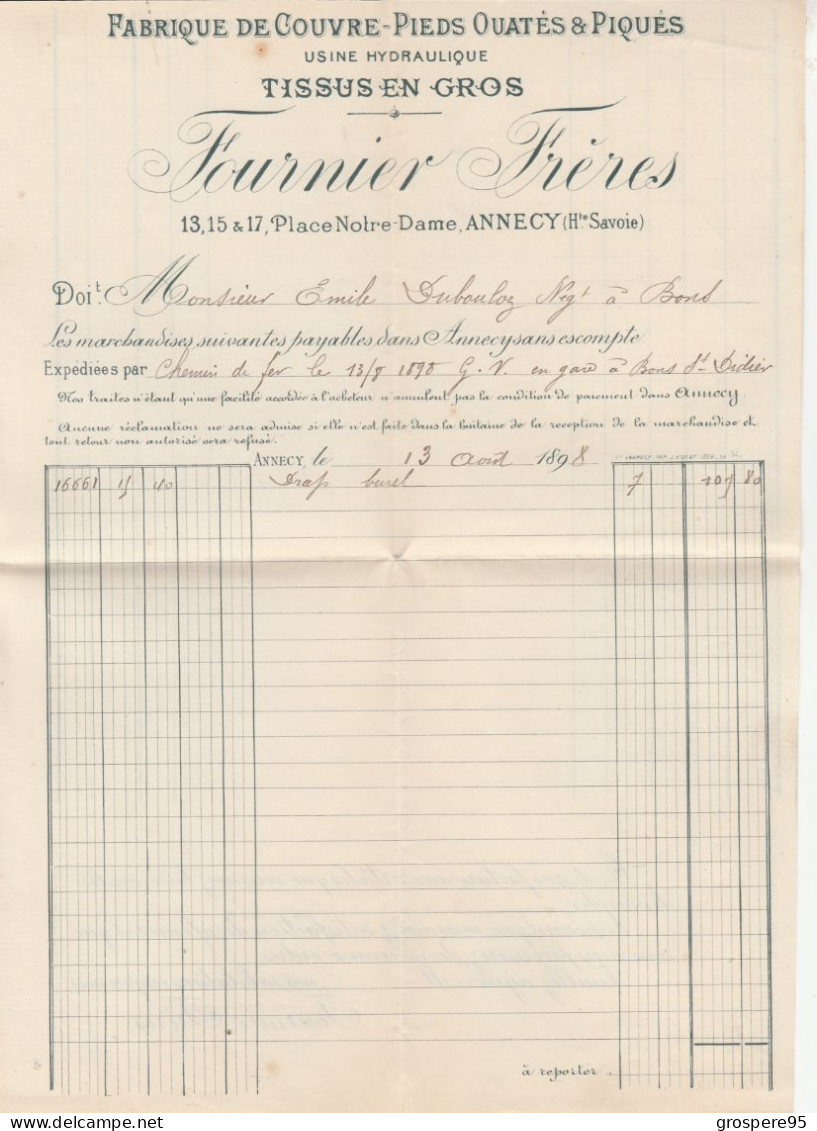 FABRIQUE DE COUVRE-PIEDS OUATÉS & PIQUÉS
USINE HYDRAULIQUE
TISSUS EN GROS
Fournier Frères
13, 15 & 17, Place Notre-Dame, ANNECY (Hte Savoie)
Doit. Monsieur Emile Dubouloz Negt à Bons
Les marchandises suivantes payables dans Annecy sans escompte
Expédiées par Chemin de fer le 13/8 1898 G. V. en gare à Bons St Didier
Nos traites n'étant qu'une facilité accordée à l'acheteur n'annulent pas la condition de paiement dans Annecy.
Aucune réclamation ne sera admise si elle n'est faite dans la huitaine de la reception de la marchandise et
tout retour non autorisé sera refusé.
ANNECY, le 13 Août 1898
16661 15 40 Drap burel 7 107 80
à reporter
grospere95